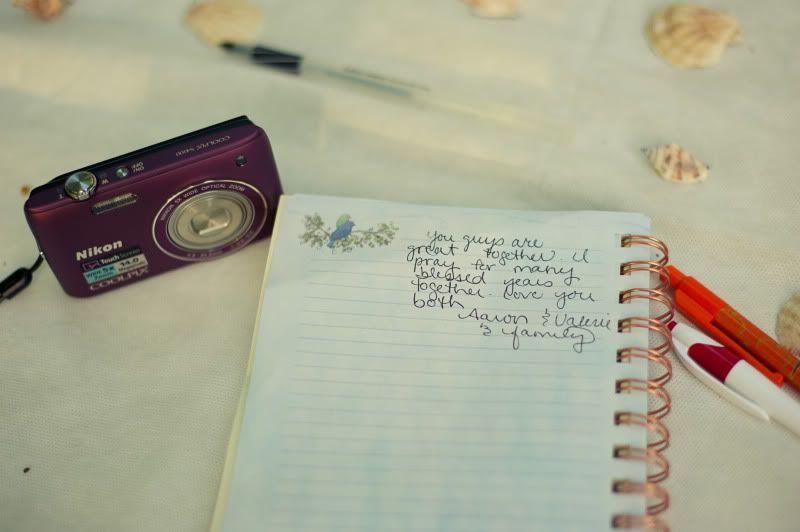 COOLPIX S4100
ON/
OFF
WIDE OPTICAL ZOOM
Nikon
TouchScreen
14.0
COOLPIX
you guys are
great together. I
pray for many
blessed years
together. Love you
both
Aaron & Valerie
& family